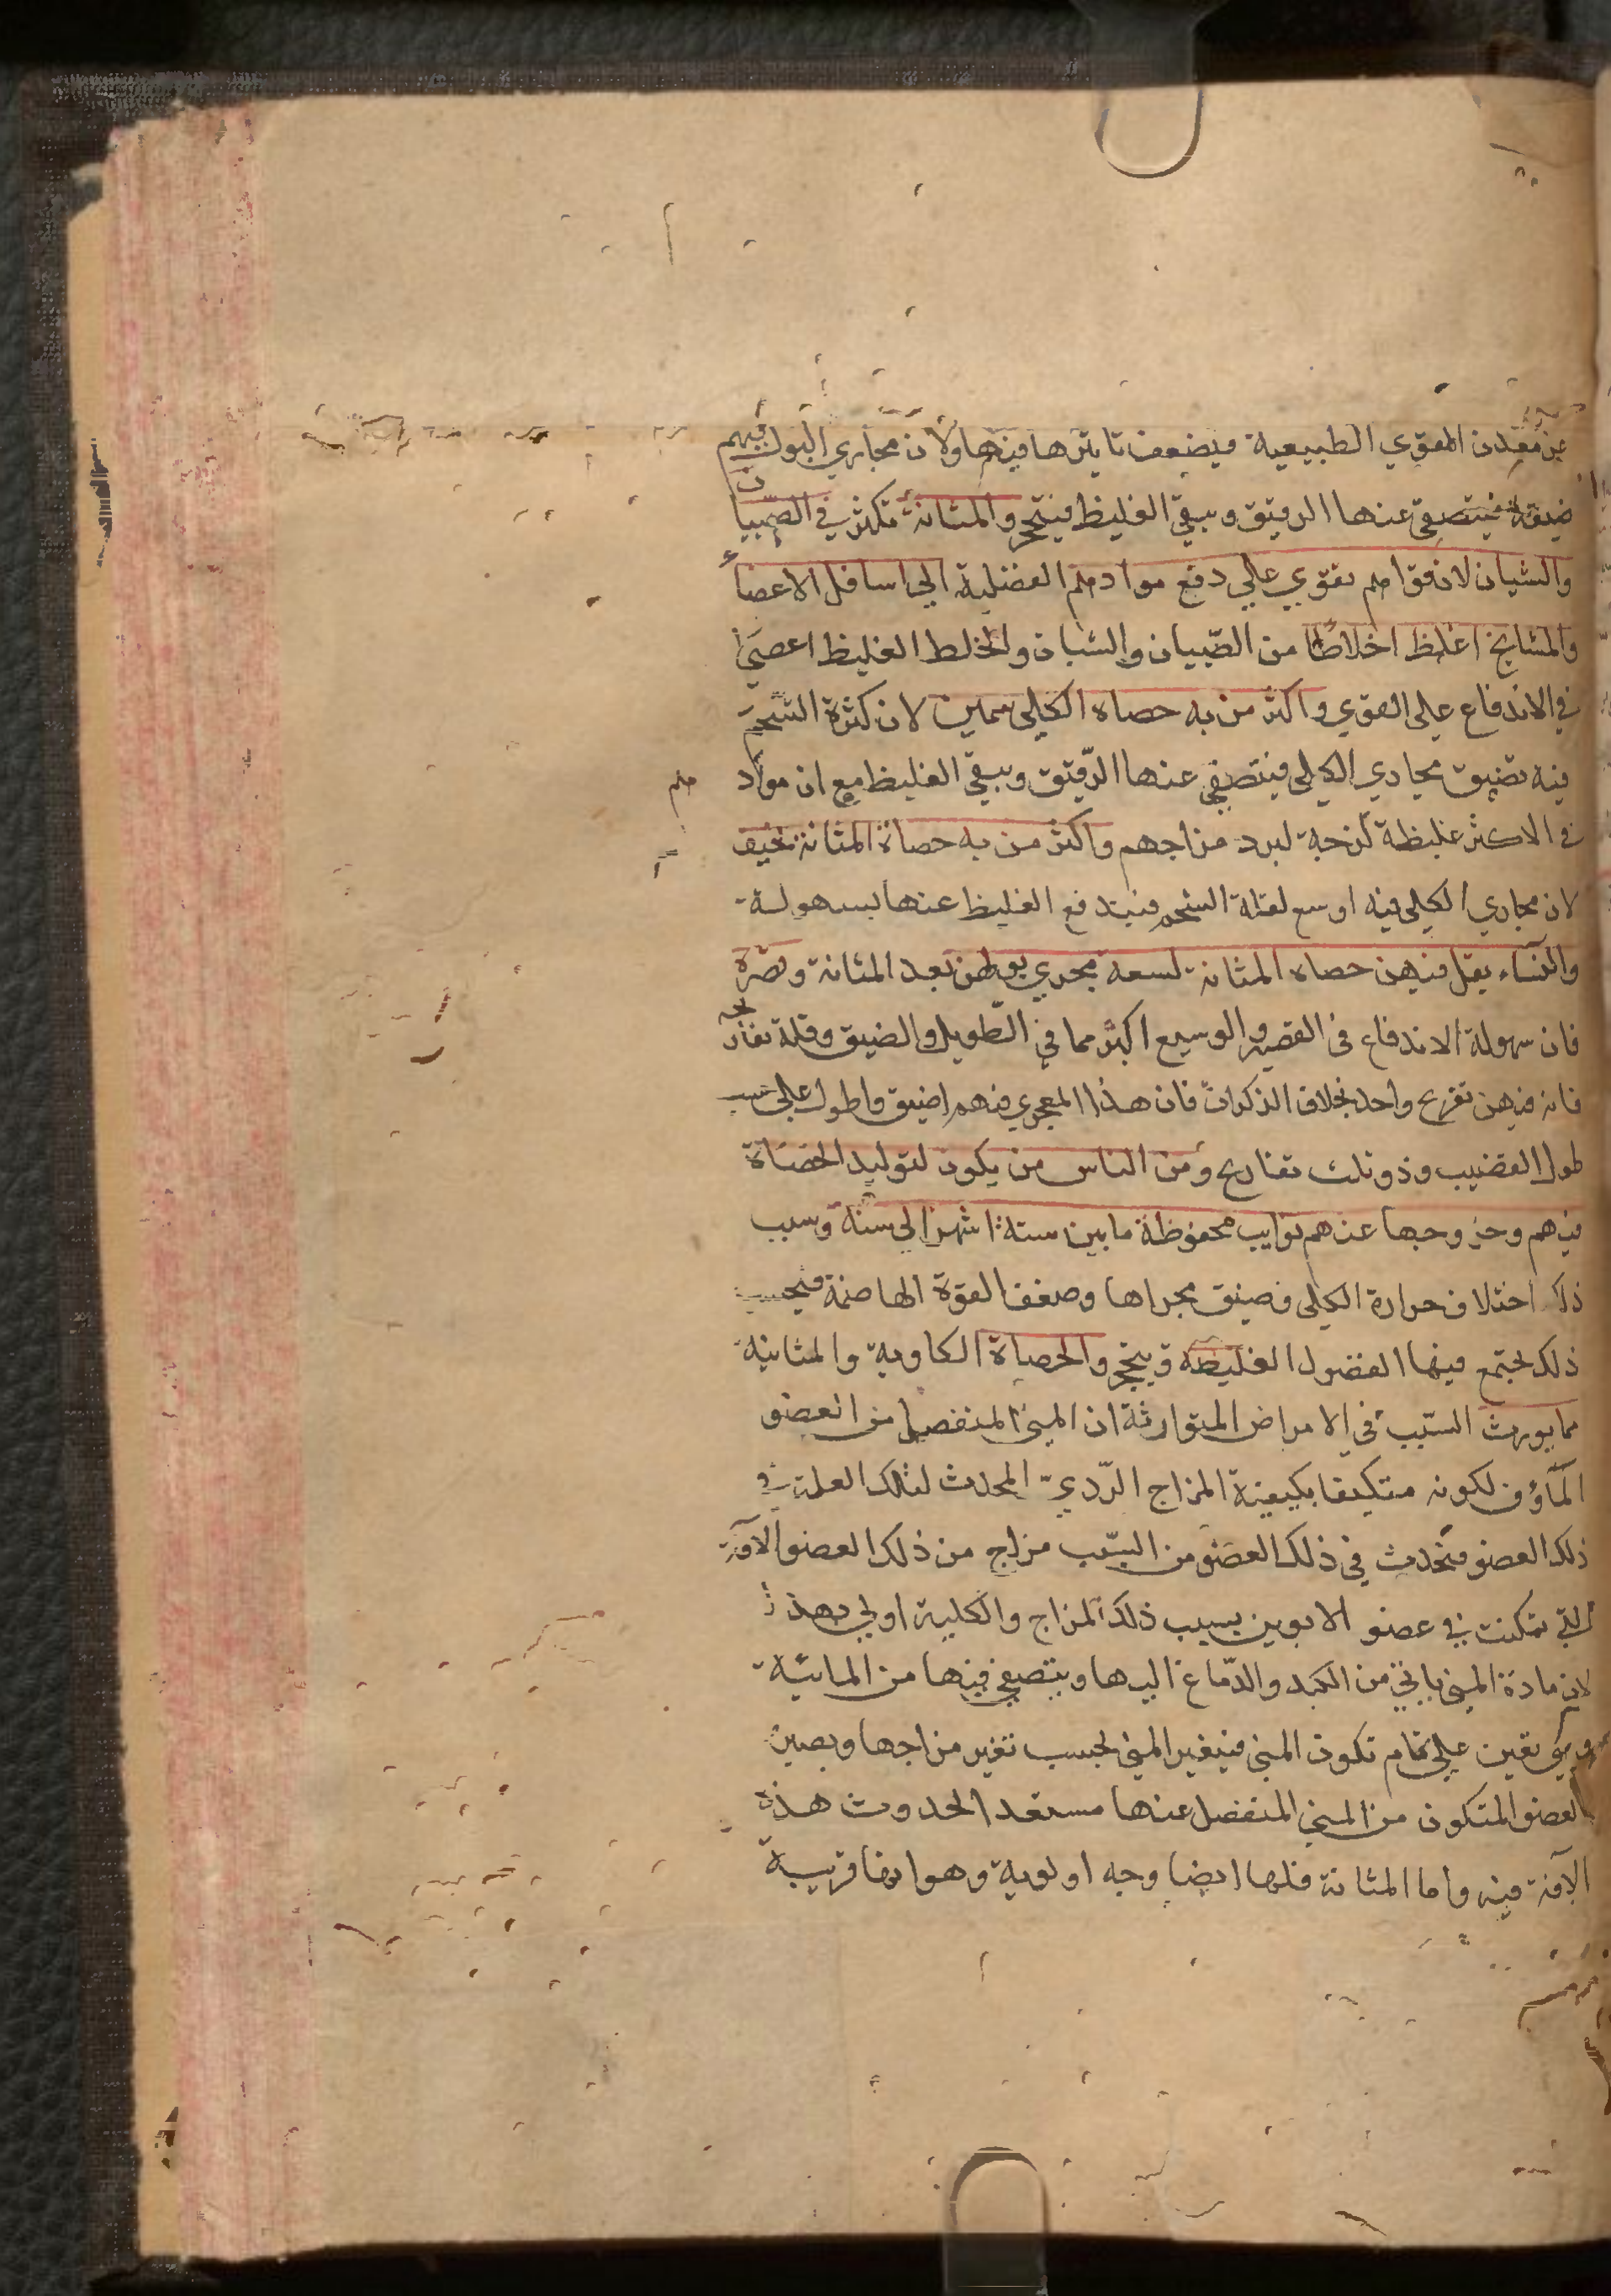 عن معدن القوي الطبيعية فيضعف تاثيرها فيها ولان مجاري البول فيهم
ضيقة فيتصفي عنها الرقيق ويبقي الغليظ فيتحجر والمثانة تكثر في الصبيان
والشبان لان قواهم تقوي علي دفع موادهم الفضلية الي اسافل الاعضاء
والمشايخ اغلظ اخلاطا من الصّبيان والشبان والخلط الغليظ اعصي
في الاندفاع علي القوي واكثر من به حصاة الكلي سمين لان كثرة الشحم
فيه تضيق مجاري الكلي فيتصفي عنها الرّقيق ويبقي الغليظ مع ان موادهم
في الاكثر غليظة لزجة لبرد مزاجهم واكثر من به حصاة المثانة نحيف
لان مجاري الكلي فيه اوسع لقلة الشحم فيندفع الغليظ عنها بسهولة
والنساء يقل فيهن حصاة المثانة لسعة مجري بولهن بعد المثانة وقصره
فان سهولة الاندفاع في القصير والوسيع اكثر مما في الطويل والضيق وقلة تعاريجه
فانه فيهن تعريج واحد بخلاف الذكران فان هذا المجري فيهم اضيق واطول علي حسب
طول القضيب وذو ثلث تعاريج ومن الناس من يكون لتوليد الحصاة
فيهم وخروجها عنهم نوايب محفوظة ما بين ستة اشهر الي سنة وسبب
ذلك اختلاف حرارة الكلي وضيق مجراها وضعف القوة الهاضمة فبحسب
ذلك يجتمع فيها الفضول الغليظة ويتحجر والحصاة الكلوية والمثانية
مما يورث السّبب في الامراض المتوارثة ان المني المنفصل من العضو
المأوف لكونه متكيفا بكيفية المزاج الرّديّ المحدث لتلك العلة في
ذلك العضو فيحدث في ذلك العضو من السّبب مزاج من ذلك العضو الآفة
التي تمكنت في عضو الابوين بسبب ذلك المزاج والكلية اولي بهذا
لان مادة المني ياتي من الكبد والدّماغ اليها ويتصفي فيها من المائية
وهي تعين علي تمام تكون المني فيتغير المني بحسب تغير مزاجها ويصير
العضو المتكون من المني المنفصل عنها مستعد الحدوث هذه
الآفة فيه واما المثانة فلها ايضا وجه اولوية وهو انها قريبة